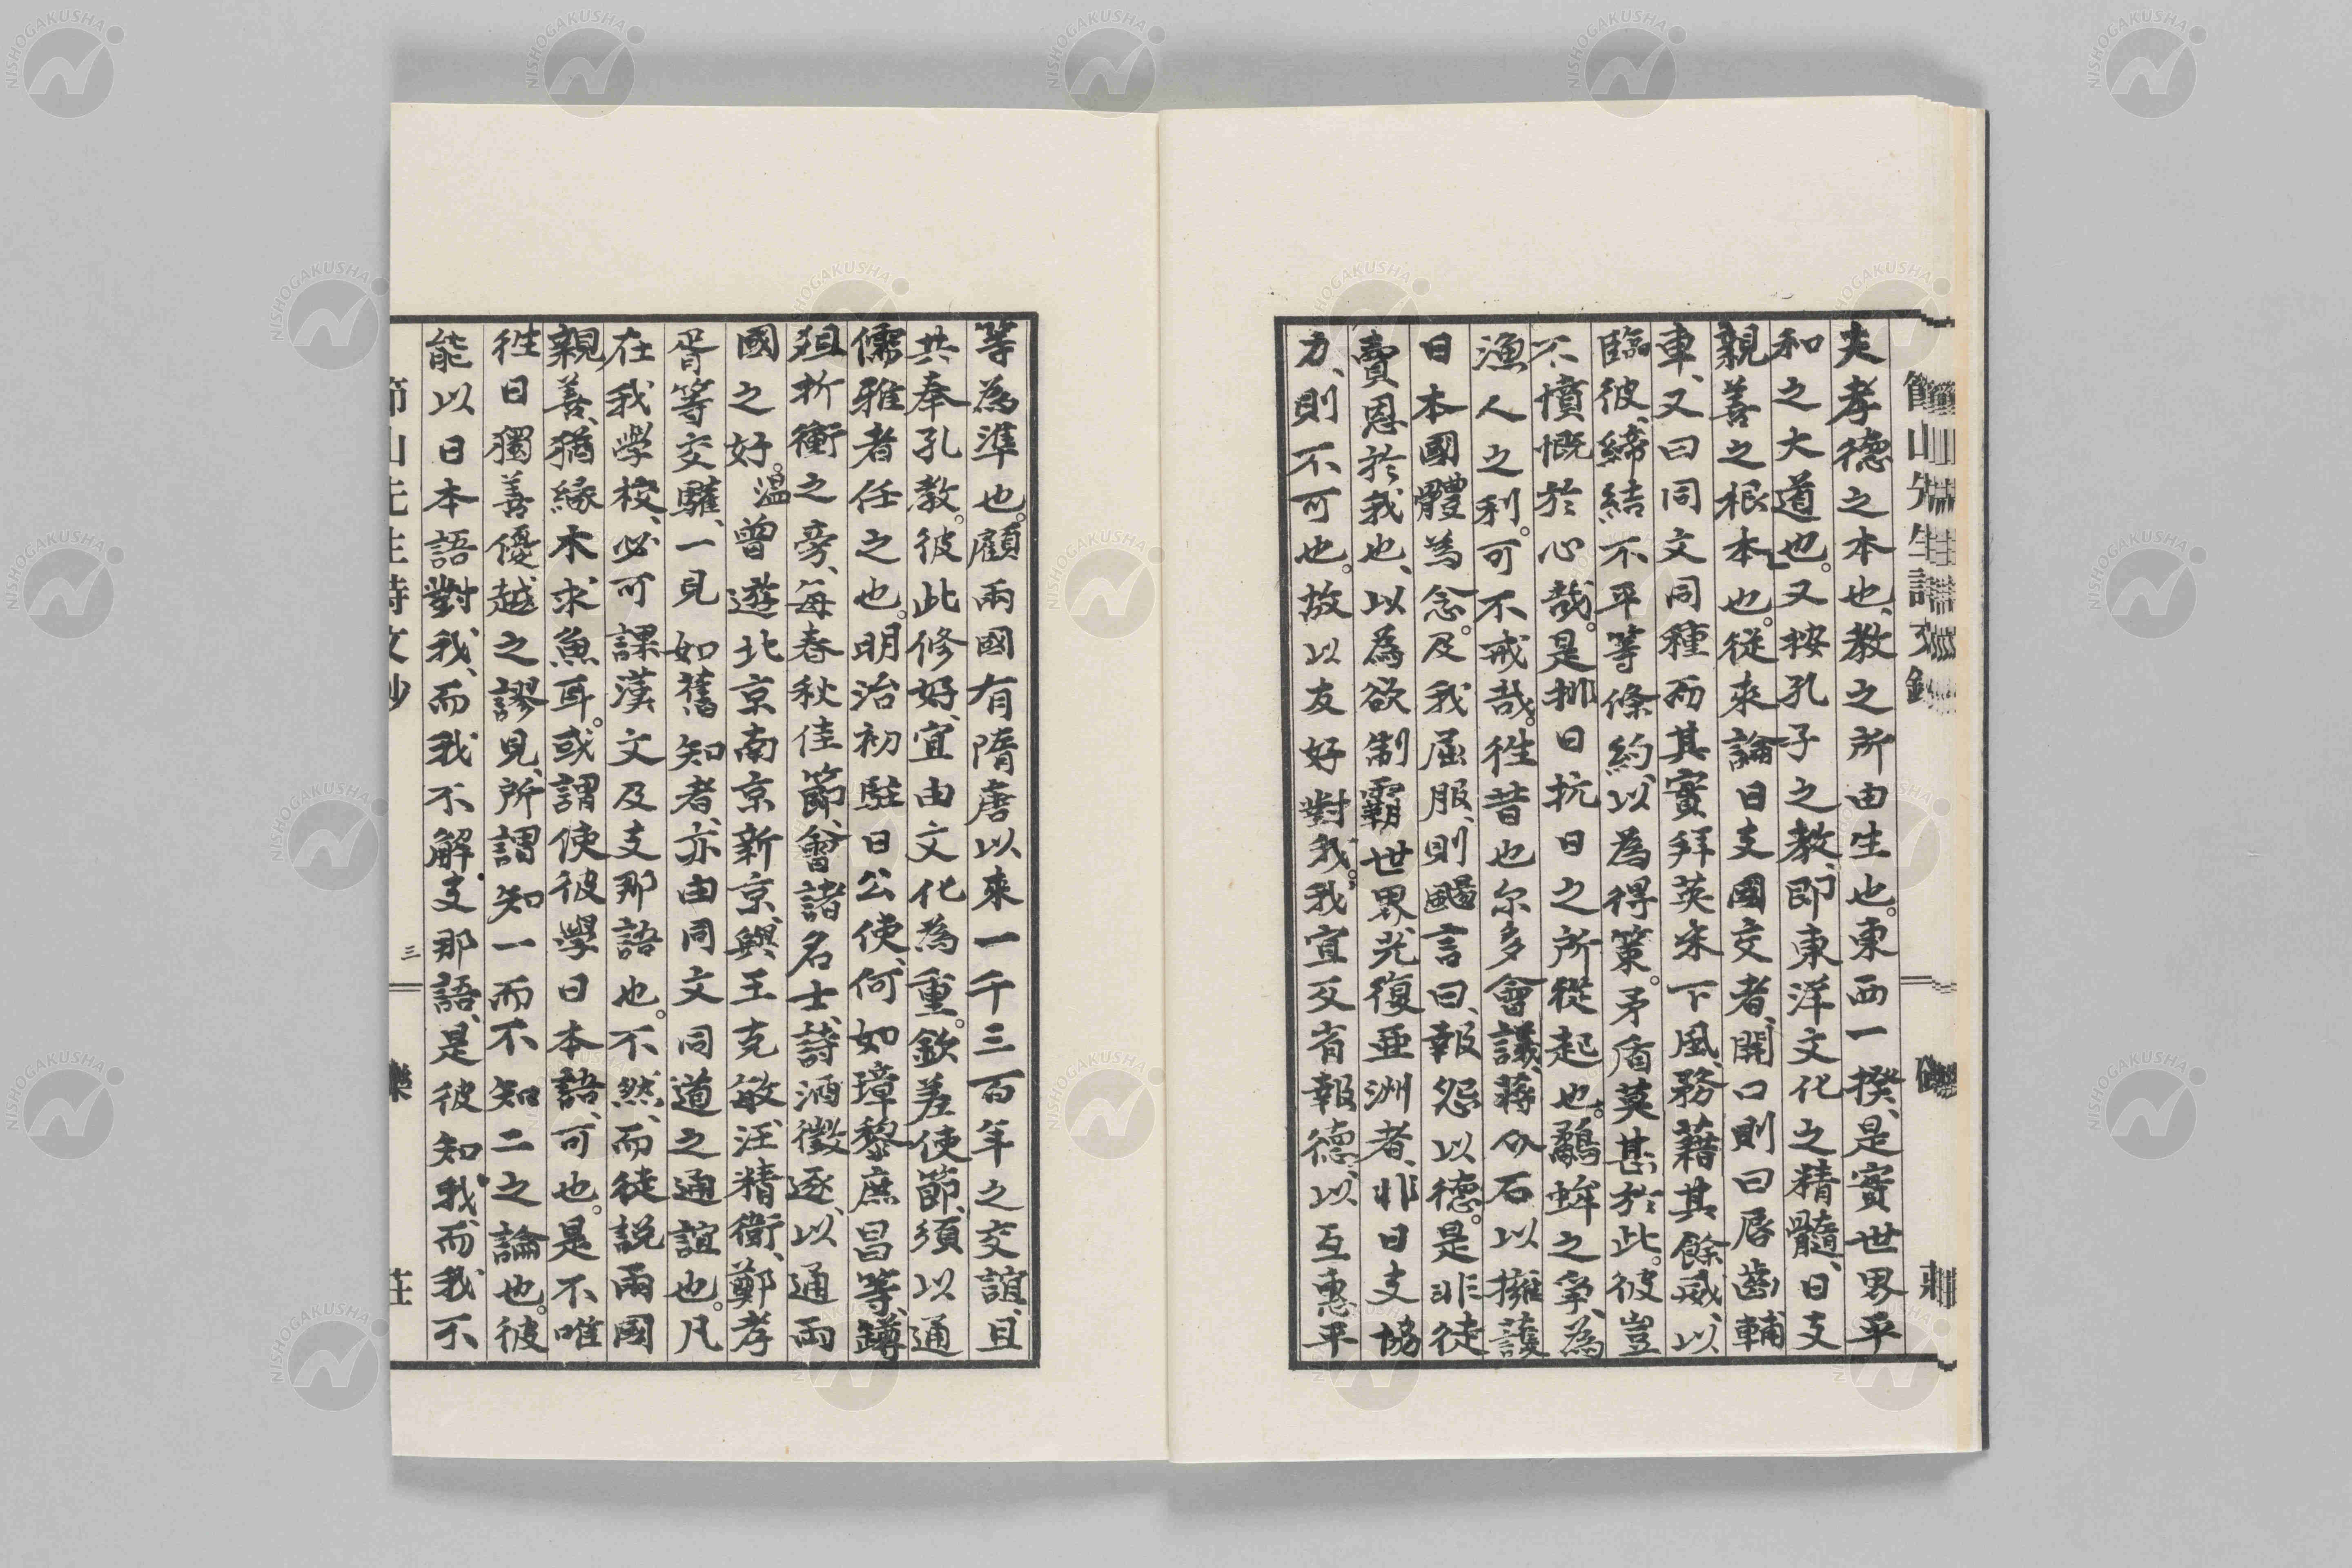 夫孝德之本也、教之所由生也。東西一揆、是實世界平
和之大道也。又按孔子之教、即東洋文化之精髓、日支
親善之根本也。從來論日支國交者、開口則曰唇齒輔
車、又曰同文同種、而其實拜英米下風、務藉其餘威、以
臨彼、締結不平等條約、以為得策。矛盾莫甚於此。彼豈
不憤慨於心哉。是排日抗日之所從起也。鷸蚌之爭、為
漁人之利。可不戒哉。徃昔也尔多會議、蔣介石以擁護
日本國體為念。及我屈服、則颺言曰、報怨以德。是非徒
賣恩於我也、以為欲制霸世界、光復亜洲者、非日支協
力、則不可也。故以友好對我。我宜反省報德、以互惠平
等為準也。顧兩國有隋唐以來一千三百年之交誼、且
共奉孔教。彼此修好、宜由文化為重。欽差使節、須以通
儒雅者任之也。明治初駐日公使、何如璋黎庶昌等、罇
俎折衝之旁、每春秋佳節、會諸名士、詩酒徵逐、以通兩
國之好。溫曾遊北京南京新京、與王克敏汪精衛、鄭孝
胥等交驩、一見如舊知者、亦由同文同道之通誼也。凡
在我學校、必可課漢文及支那語也。不然、而徒説兩國
親善、猶緣木求魚耳。或謂使彼學日本語、可也。是不唯
徃日獨善優越之謬見、所謂知一而不知二之論也。彼
能以日本語對我、而我不解支那語、是彼知我、而我不
節山先生詩文鈔
三
樂
莊
NISHOGAKUSHA